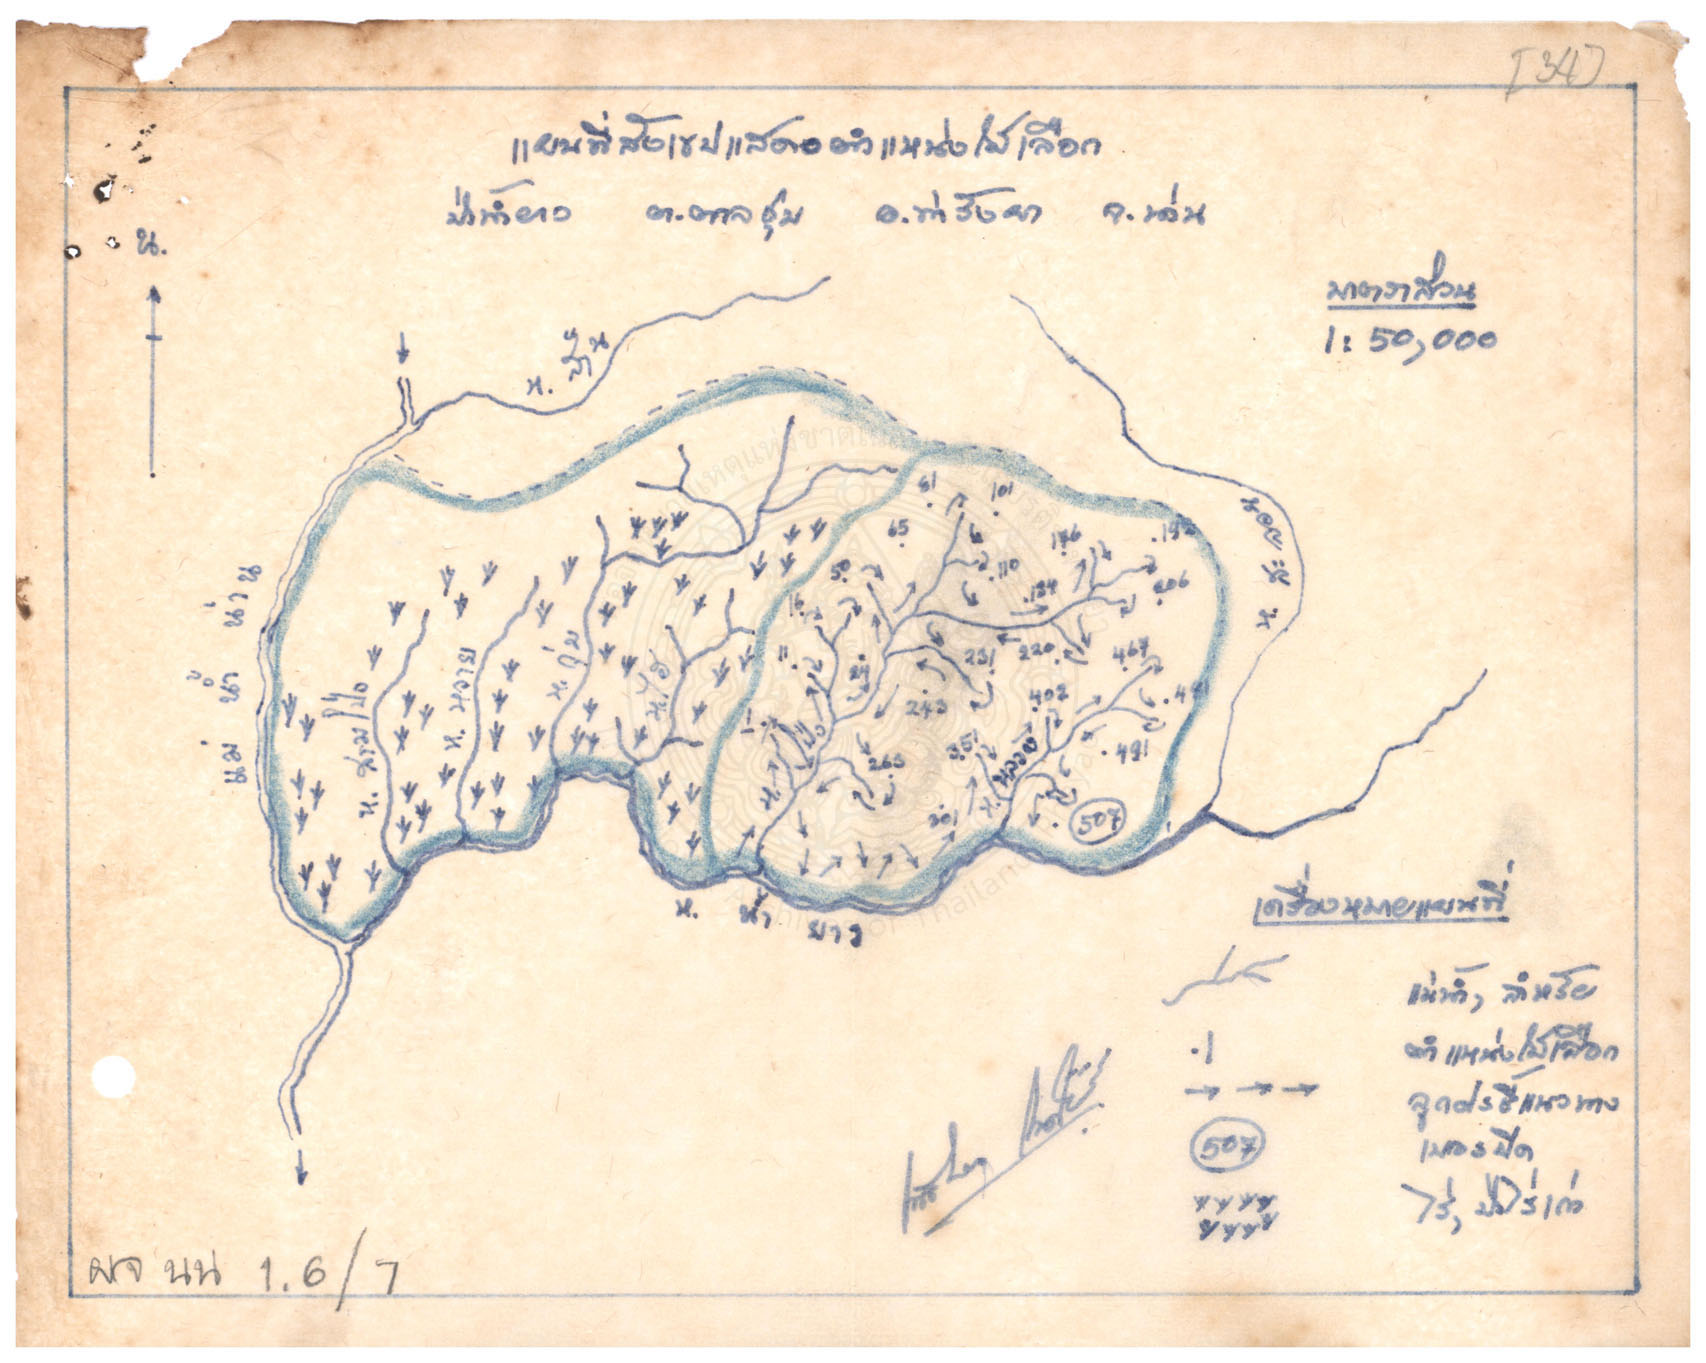 [34]
แผนที่สังเขปแสดงตำแหน่งไม้เลือก
ป่าน้ำยาว ต.ตาลชุม อ.ท่าวังผา จ.น่าน
น.
มาตราส่วน
1:50,000
ห. ส้าน
81
101
65
176
192
50
110
184
206
16
แม่น้ำน่าน
11
24
231
220
467
ห. สามปั๋ง
ห.
ห. ตุ่ม
ห.
402
243
1
351
491
263
301
ห. หลวง
507
ห. น้ำ ยาว
เครื่องหมายแผนที่
แม่น้ำ, ลำห้วย
.1 ตำแหน่งไม้เลือก
ลูกศรชี้แนวทาง
507 เบอร์ปิด
ไร่, ป่าไร่เก่า
ผจ นน 1.6/7